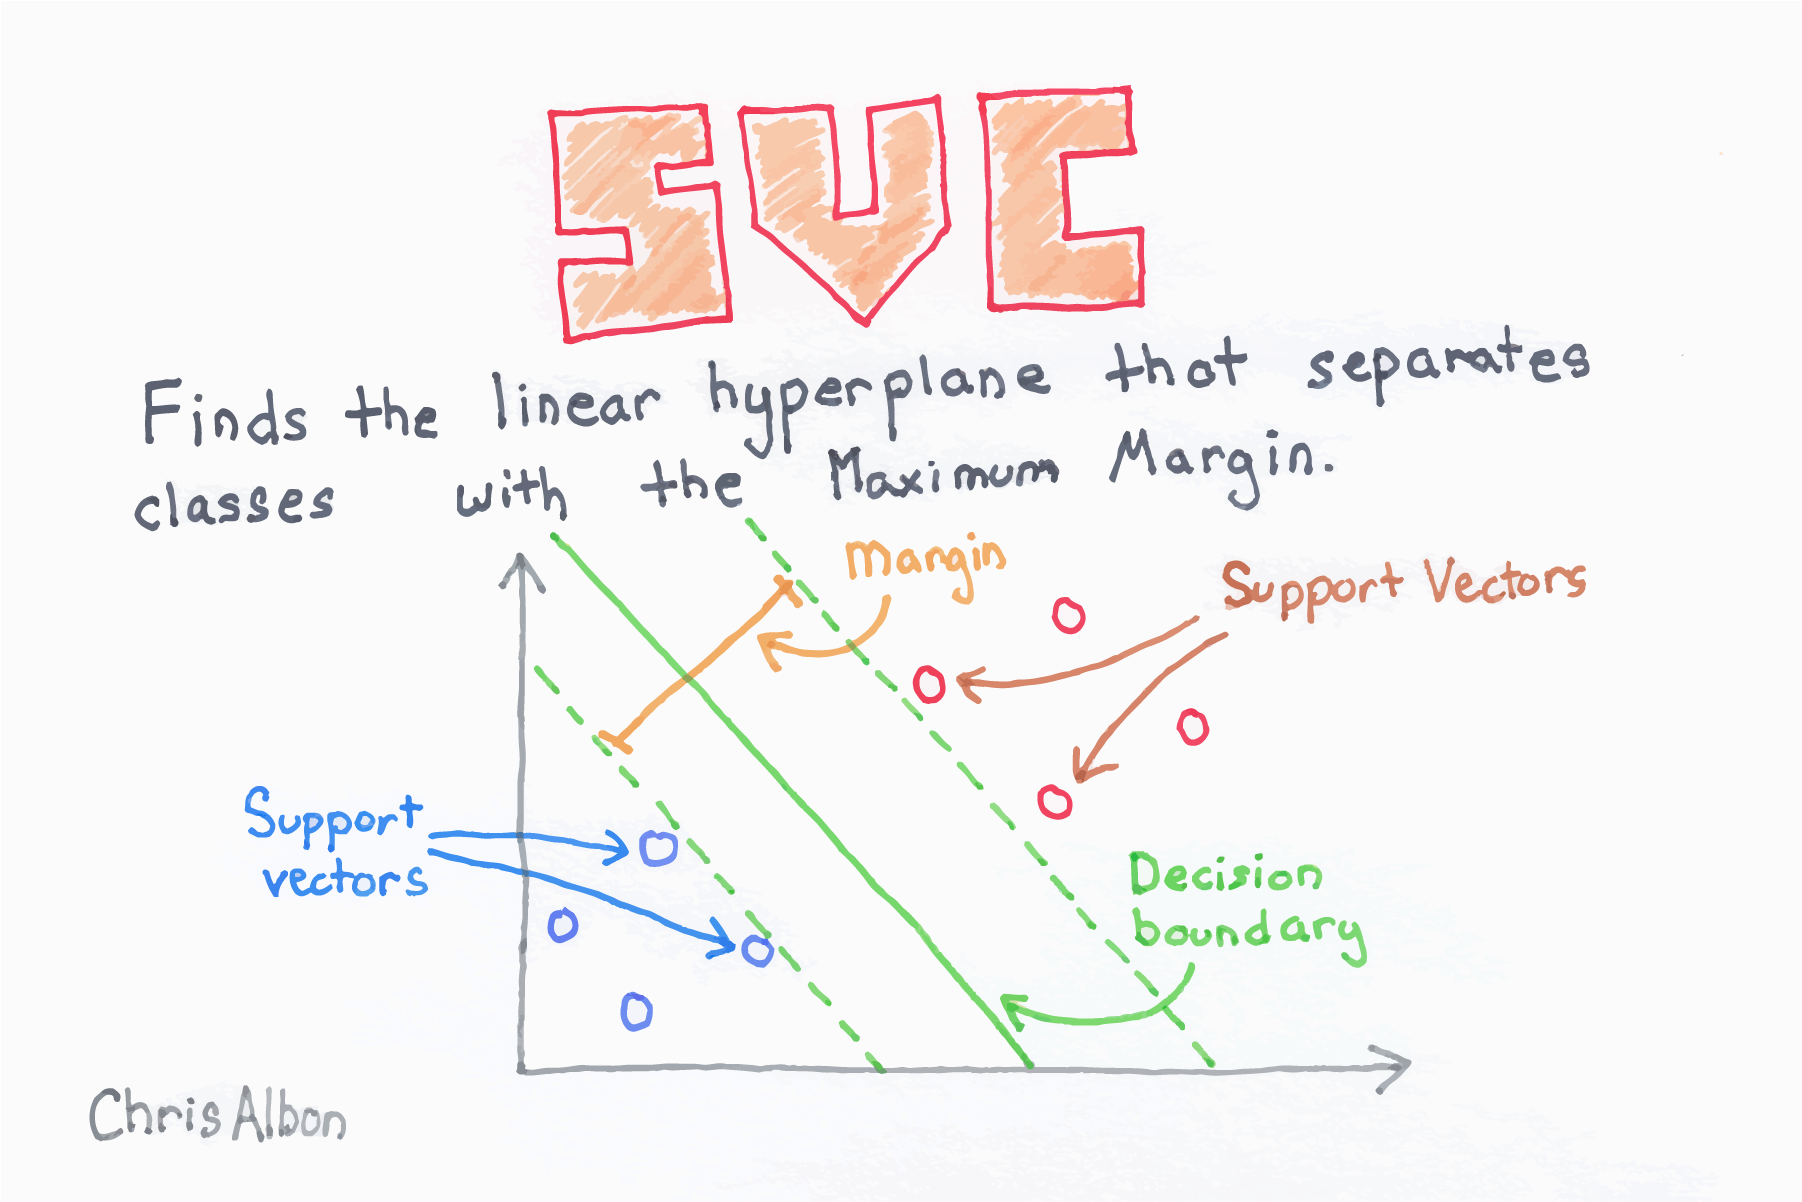 SVC
Finds the linear hyperplane that separates
classes with the Maximum Margin.
margin
Support Vectors
Support
vectors
Decision
boundary
Chris Albon